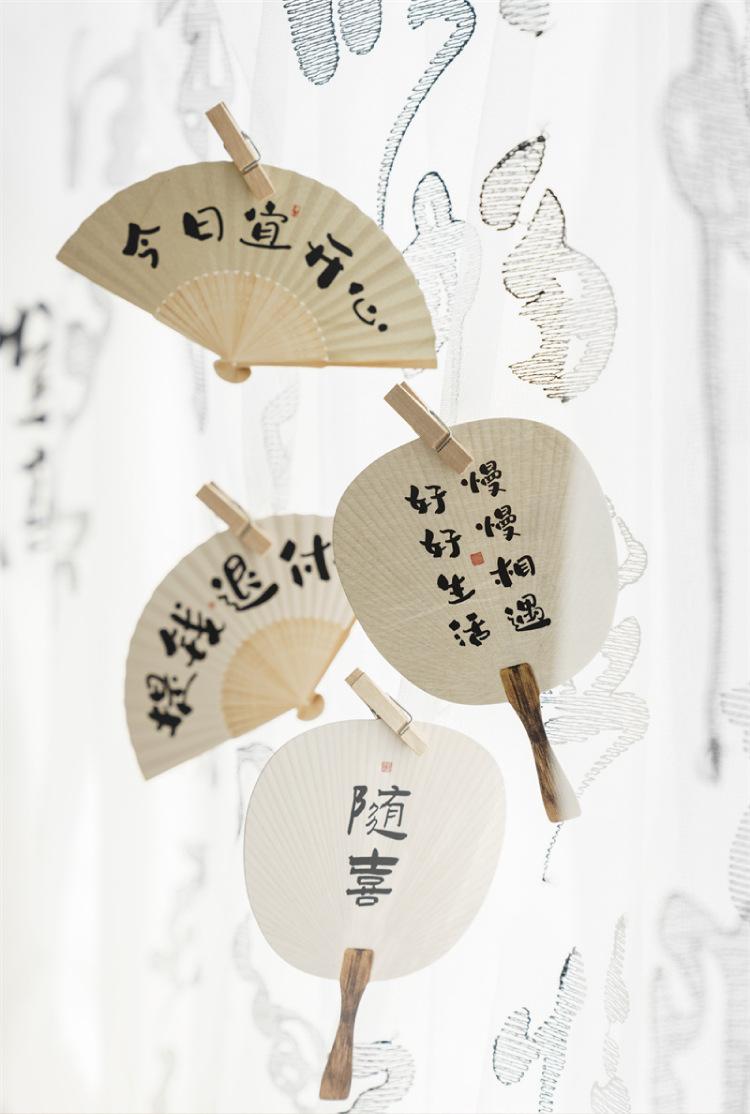 今日宜开心
慢慢相遇
好好生活
提钱退休
随喜